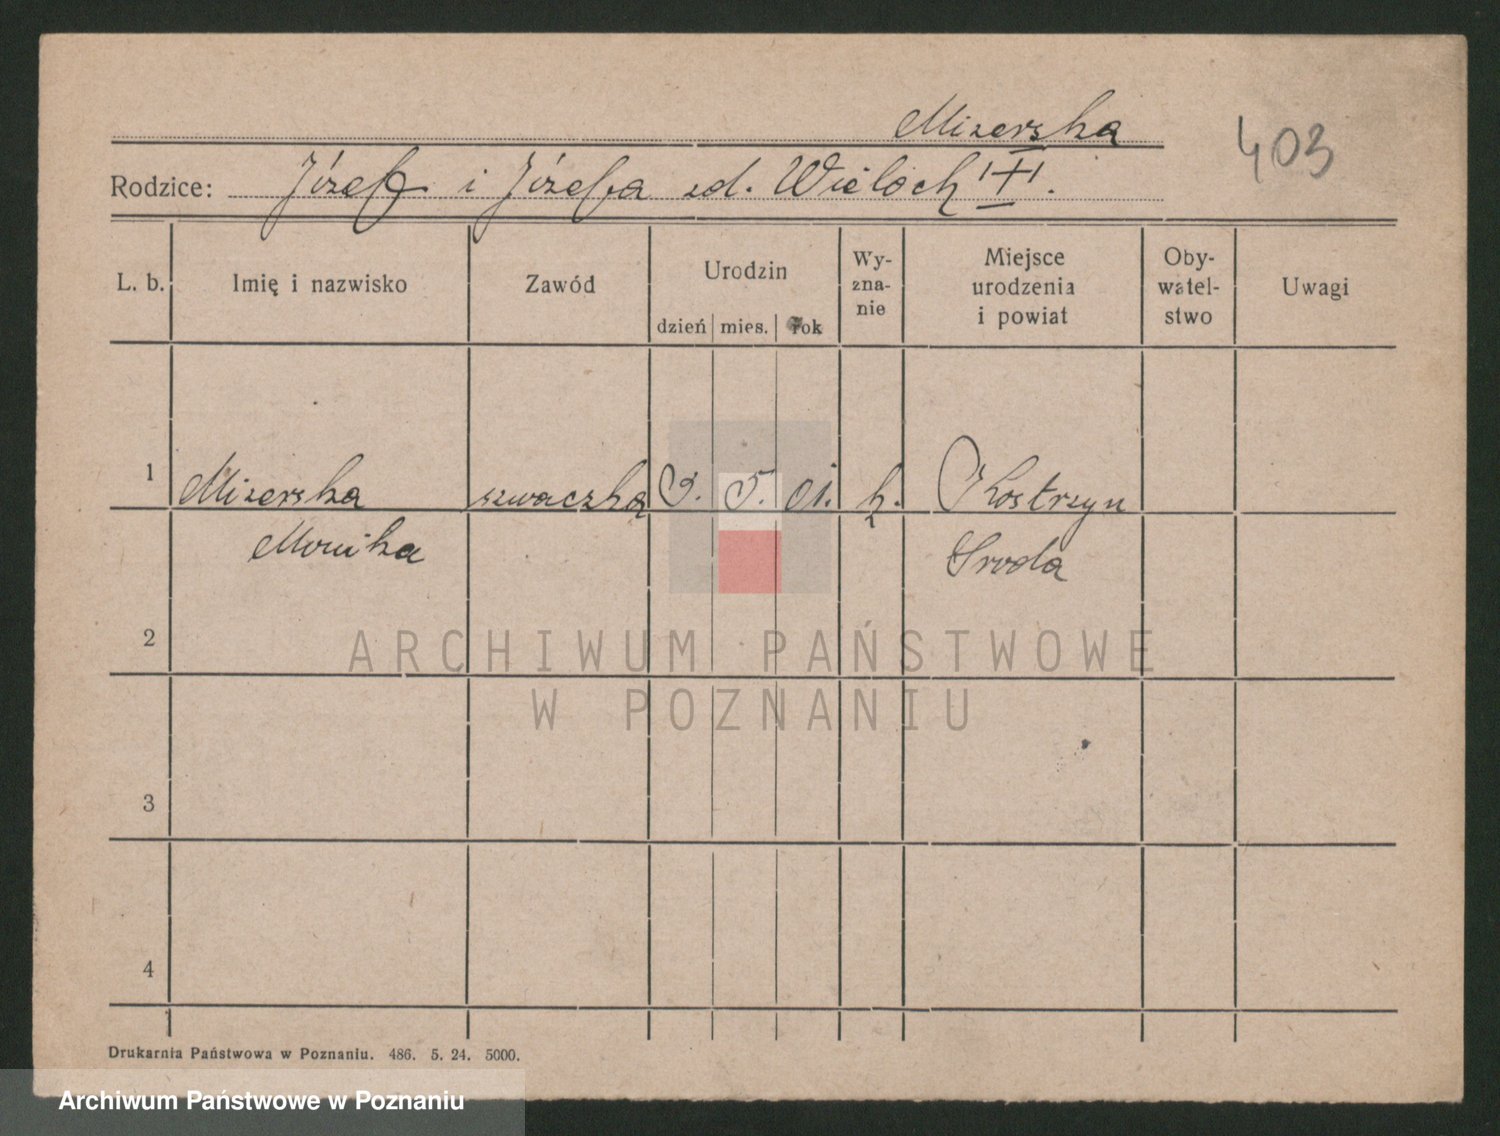 Mizerska
403
Rodzice: Józef i Józefa zd. Wieloch
L. b. Imię i nazwisko Zawód Urodzin dzień mies. rok Wy-zna-nie Miejsce urodzenia i powiat Oby-watel-stwo Uwagi
1 Mizerska szwaczka 9. 5. 01. k. Kostrzyn
Monika Sroda
2
ARCHIWUM PAŃSTWOWE
W POZNANIU
3
4
Drukarnia Państwowa w Poznaniu. 486. 5. 24. 5000.
Archiwum Państwowe w Poznaniu